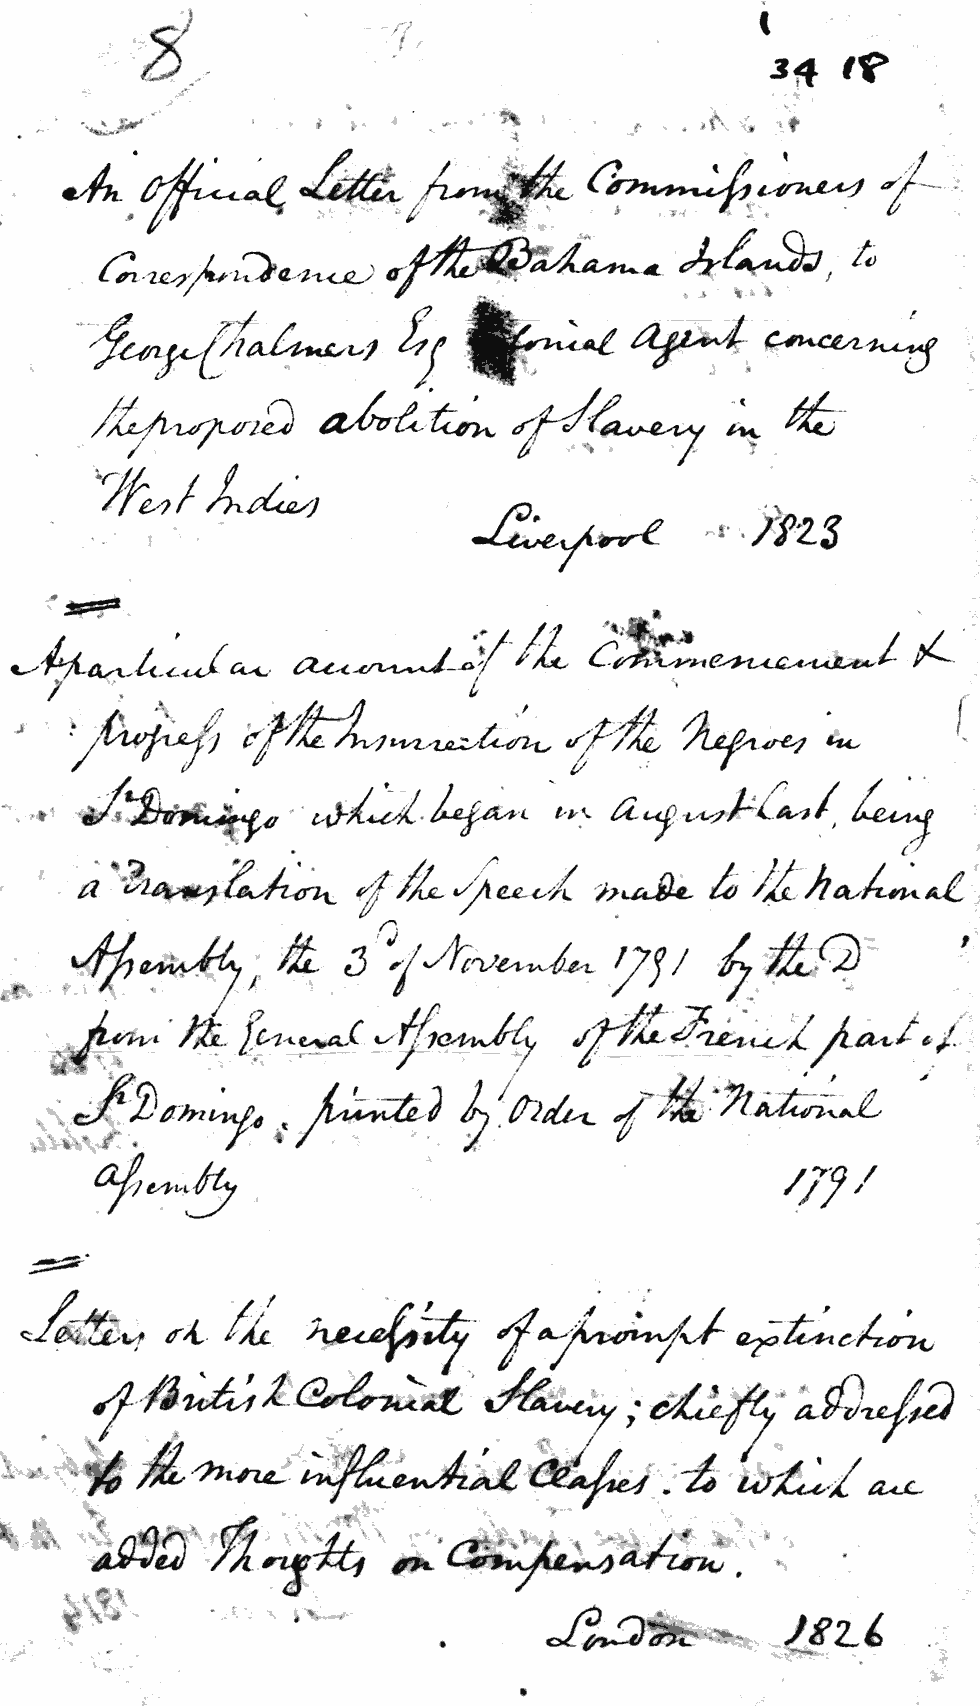 8
1
34 18
An Official Letter from the Commissioners of
Correspondence of the Bahama Islands, to
George Chalmers Esq Colonial Agent concerning
the proposed abolition of Slavery in the
West Indies
Liverpool 1823
A particular account of the Commencement &
progress of the Insurrection of the Negroes in
St Domingo which began in August last, being
a Translation of the Speech made to the National
Assembly, the 3d of November 1791 by the D
from the General Assembly of the French part of
St Domingo. printed by Order of the National
Assembly 1791
Letters on the necessity of a prompt extinction
of British Colonial Slavery; chiefly addressed
to the more influential Classes. to which are
added Thoughts on Compensation.
London 1826